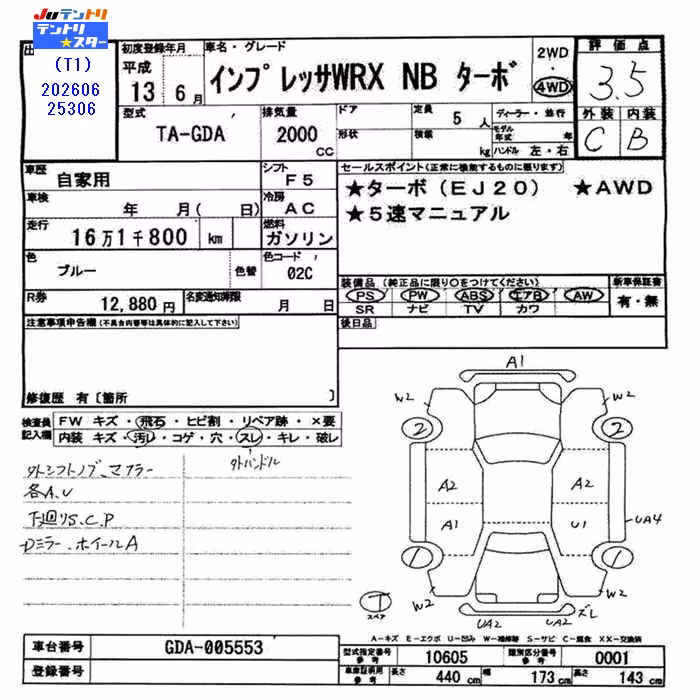 JUテントリ
テントリ★スター
(T1)
202606
25306
初度登録年月
平成
13 年 6 月
車名・グレード
インプレッサWRX NB ターボ
2WD
・
4WD
評価点
3.5
外装 内装
C B
型式
TA-GDA
排気量
2000
CC
ドア
形状
定員 5 人
積載 kg
ディーラー・並行
モデル年式 年
ハンドル 左・右
車歴
自家用
シフト
F5
車検
年 月( 日)
冷房
AC
走行
16万1千800 km
燃料
ガソリン
色
ブルー
色替
色コード
02C
R券
12,880 円
名変通知期限
月 日
セールスポイント(正常に検能するものに限ります)
★ターボ(EJ20) ★AWD
★5速マニュアル
装備品(純正品に限り○をつけてください)
PS PW ABS エアB AW
SR ナビ TV カワ
新車保証書
有・無
後日品
注意事項申告欄(不具合内容等は具体的に記入して下さい)
修復歴 有〔箇所 〕
検査員
記入欄
FW キズ・飛石・ヒビ割・リペア跡・×要
内装 キズ・汚レ・コゲ・穴・スレ・キレ・破レ
外シフトノブ、マフラー
外ハンドル
各A.U
下廻りS.C.P
Dミラー.ホイールA
A1
W2
W2
2
2
A2
A2
A1
U1
UA4
1
1
W2
W2
T
スペア
UA2
UA2
ズレ
A-キズ E-エクボ U-凹み W-補修跡 S-サビ C-腐食 XX-交換済
車台番号
GDA-005553
登録番号
型式指定番号
参考
10605
類別区分番号
参考
0001
車庫証明用
参考
長さ 440 cm 幅 173 cm 高さ 143 cm